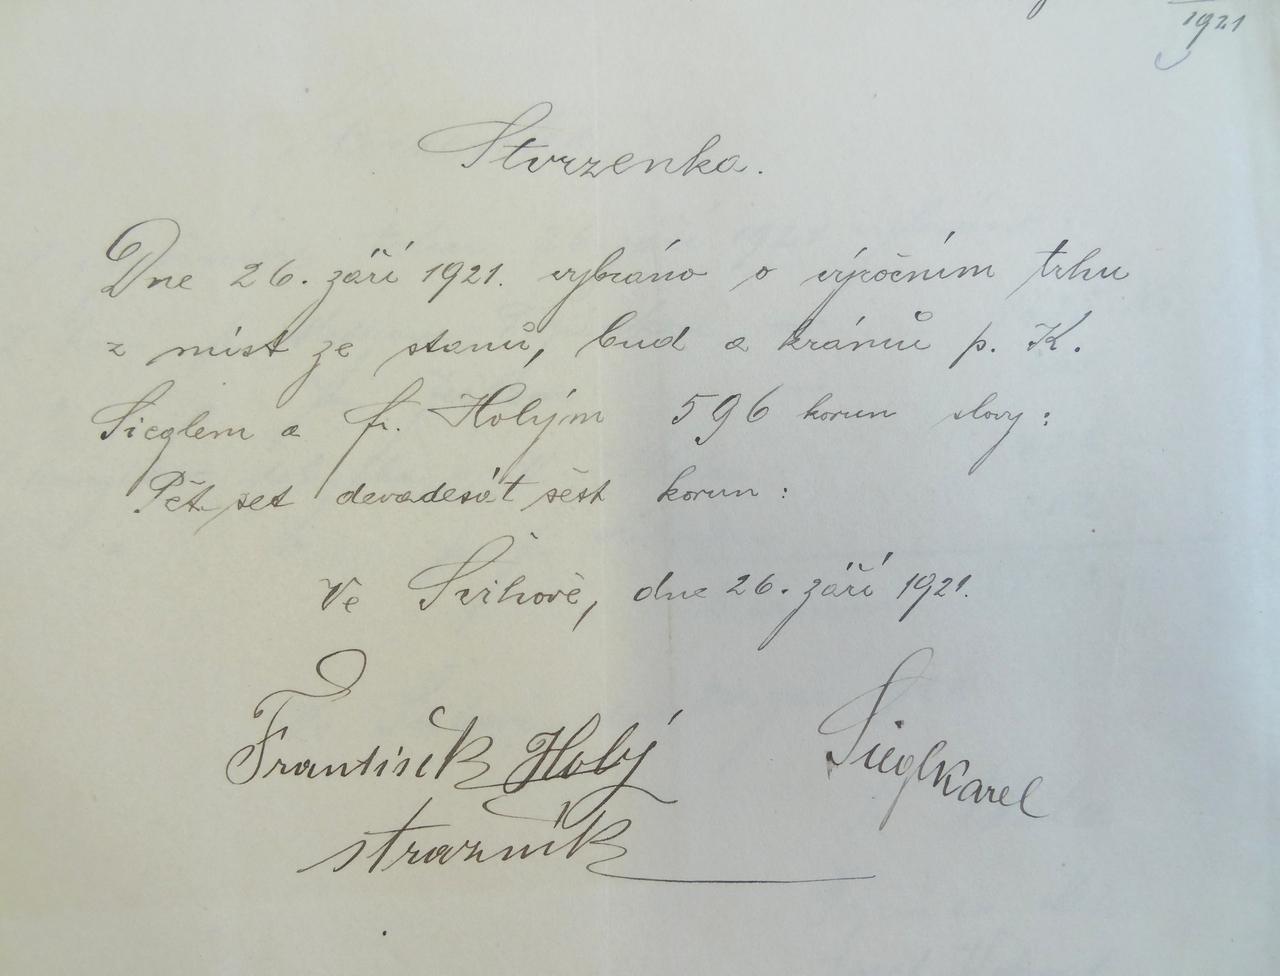 1921
Stvrzenka.
Dne 26. září 1921. vybráno o výročním trhu
z míst ze stanů, bud a krámů p. K.
Sieglem a fr. Holým 596 korun slovy:
Pět set devadesát šest korun:
Ve Švihově, dne 26. září 1921.
František Holý Siegl Karel
strážník